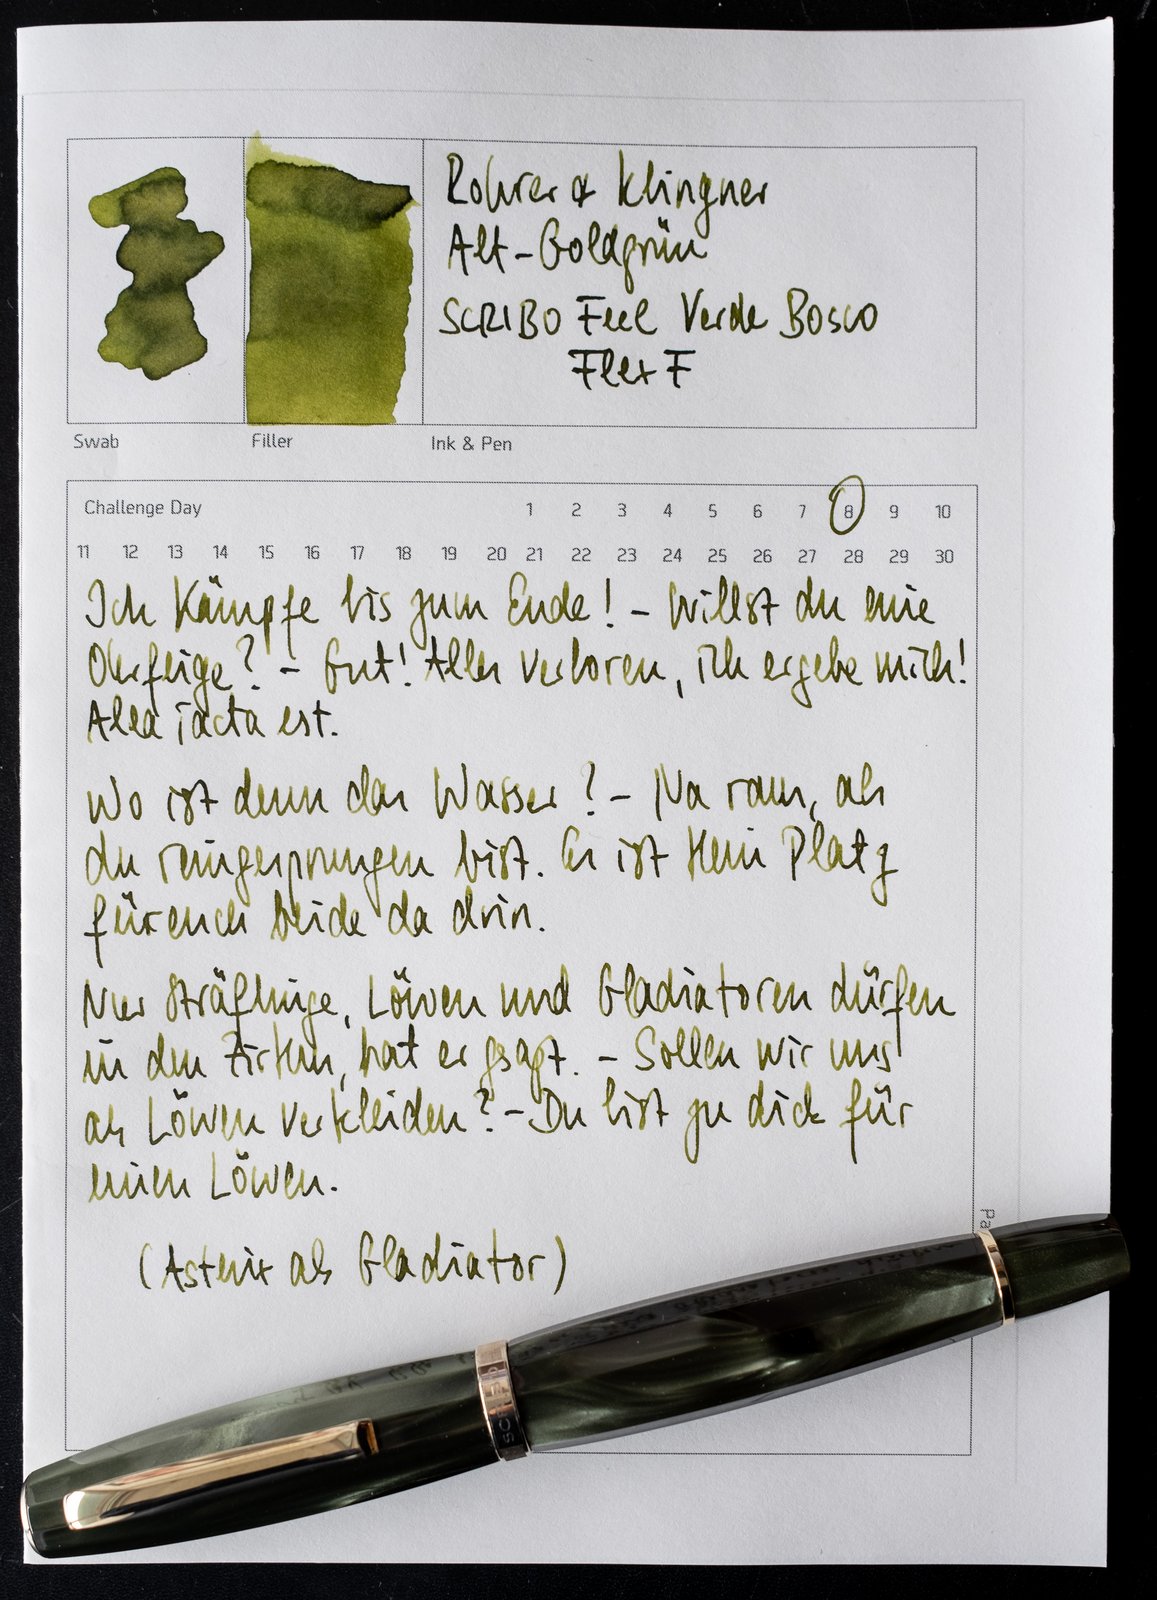 Rohrer & Klingner
Alt-Goldgrün
SCRIBO Feel Verde Bosco
Flex F
Swab Filler Ink & Pen
Challenge Day 1 2 3 4 5 6 7 8 9 10
11 12 13 14 15 16 17 18 19 20 21 22 23 24 25 26 27 28 29 30
Ich kämpfe bis zum Ende! - Willst du eine
Ohrfeige? - Gut! Alles verloren, ich ergebe mich!
Alea iacta est.
Wo ist denn das Wasser? - Na raus, als
du reingesprungen bist. Es ist kein Platz
für euch beide da drin.
Nur Sträflinge, Löwen und Gladiatoren dürfen
in den Zirkus, hat er gsagt. - Sollen wir uns
als Löwen verkleiden? - Du bist zu dick für
einen Löwen.
(Asterix als Gladiator)
Pa
SCRIBO